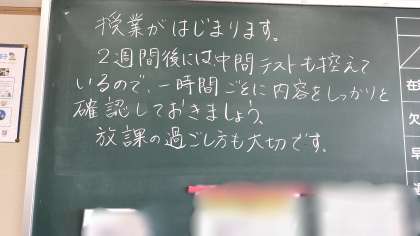 授業がはじまります。
2週間後には、中間テストも控えて
いるので、一時間ごとに内容をしっかりと
確認しておきましょう。
放課の過ごし方も大切です。
在
欠
早